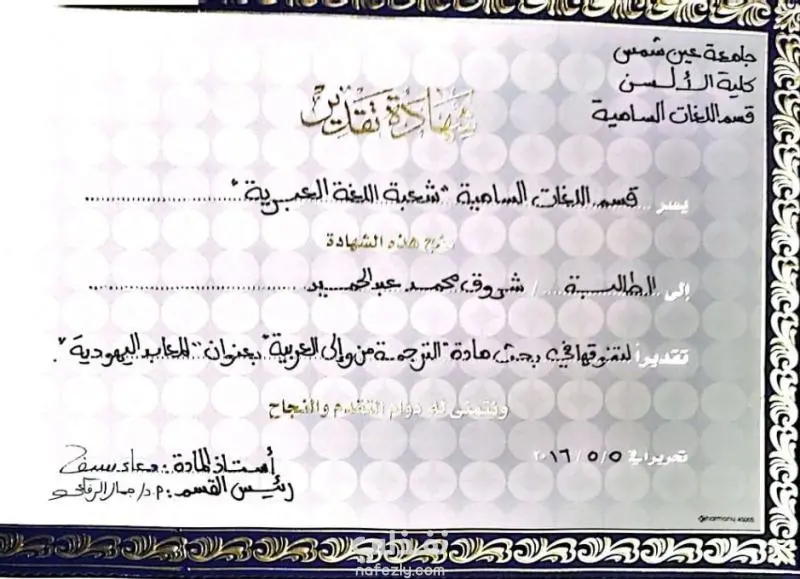 جامعة عين شمس
كلية الألسن
قسم اللغات السامية
شهادة تقدير
يسر قسم اللغات السامية "شعبة اللغة العبرية"
منح هذه الشهادة
إلى الطالبة / شروق محمد عبدالحميد
تقديراً لتفوقها في بحث مادة "الترجمة من وإلى العربية" بعنوان "المعابد اليهودية".
ونتمنى له دوام التقدم والنجاح
تحريرا في ٥/٥/٢٠١٦
أستاذ المادة: دعاء سيف
رئيس القسم: م.د/ جمال الرفاعي
harmony 4500S
نفذلي
nafezly.com